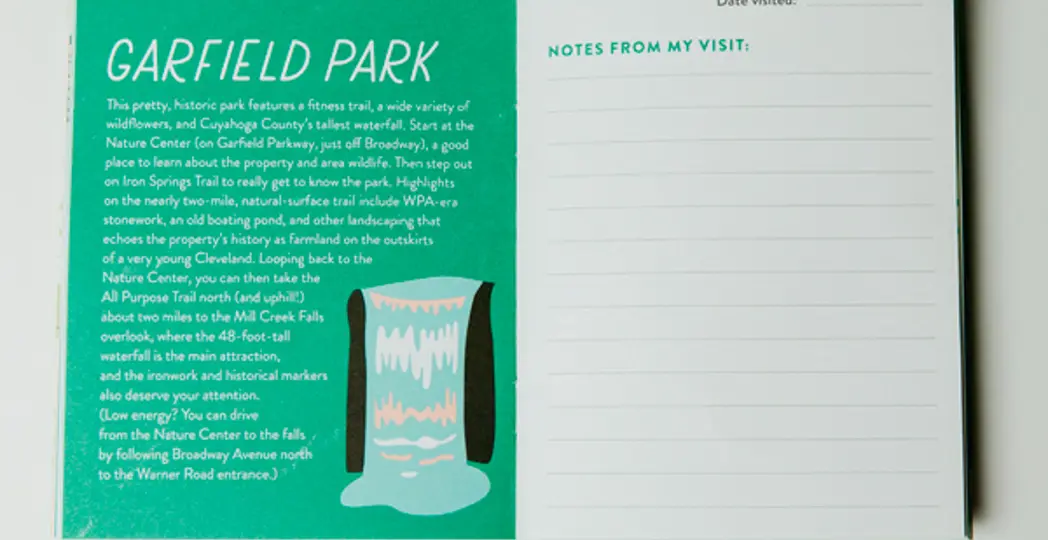 GARFIELD PARK
This pretty, historic park features a fitness trail, a wide variety of
wildflowers, and Cuyahoga County's tallest waterfall. Start at the
Nature Center (on Garfield Parkway, just off Broadway), a good
place to learn about the property and area wildlife. Then step out
on Iron Springs Trail to really get to know the park. Highlights
on the nearly two-mile, natural-surface trail include WPA-era
stonework, an old boating pond, and other landscaping that
echoes the property's history as farmland on the outskirts
of a very young Cleveland. Looping back to the
Nature Center, you can then take the
All Purpose Trail north (and uphill!)
about two miles to the Mill Creek Falls
overlook, where the 48-foot-tall
waterfall is the main attraction,
and the ironwork and historical markers
also deserve your attention.
(Low energy? You can drive
from the Nature Center to the falls
by following Broadway Avenue north
to the Warner Road entrance.)
Date visited:
NOTES FROM MY VISIT: